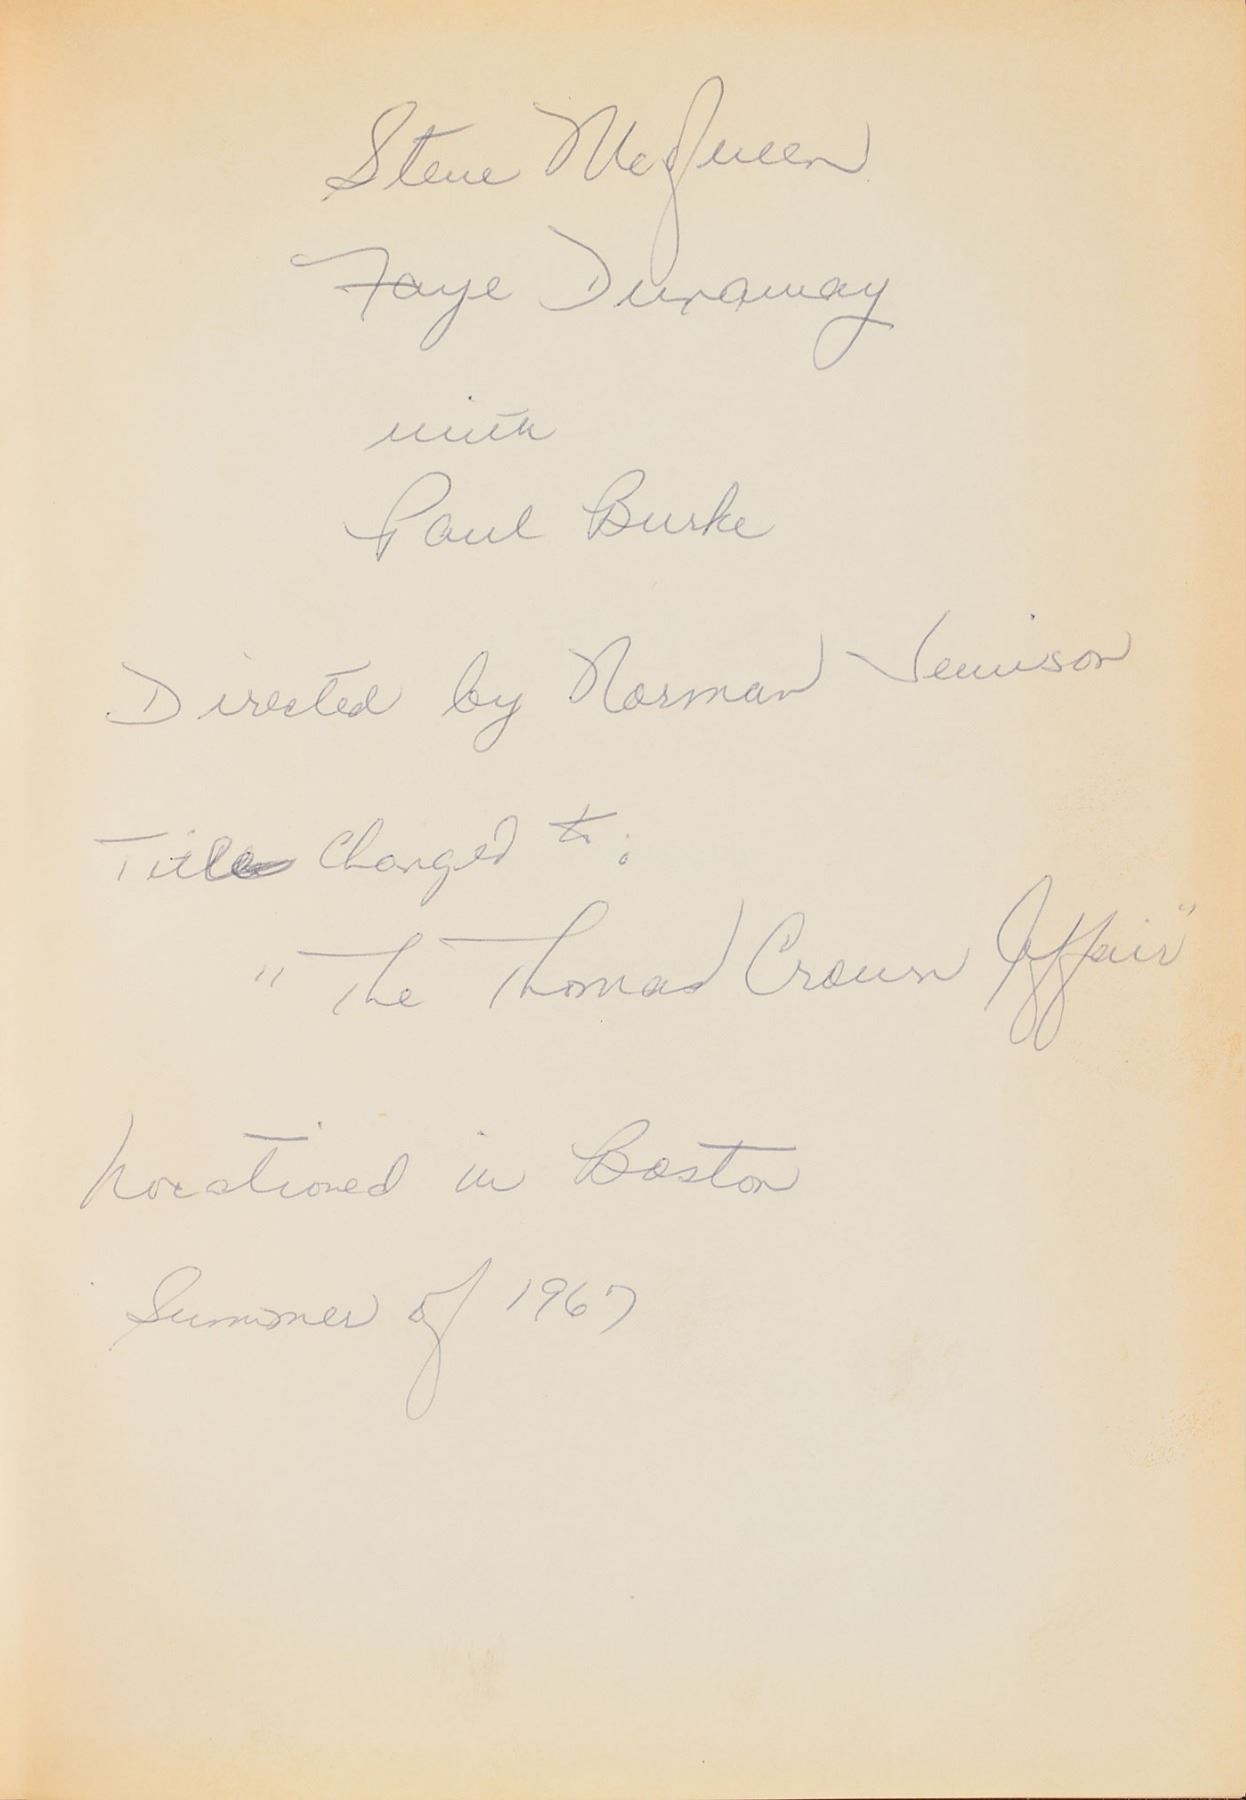 Steve McQueen
Faye Dunaway
with
Paul Burke
Directed by Norman Jewison
Title Changed to:
"The Thomas Crown Affair"
Locationed in Boston
Summer of 1967